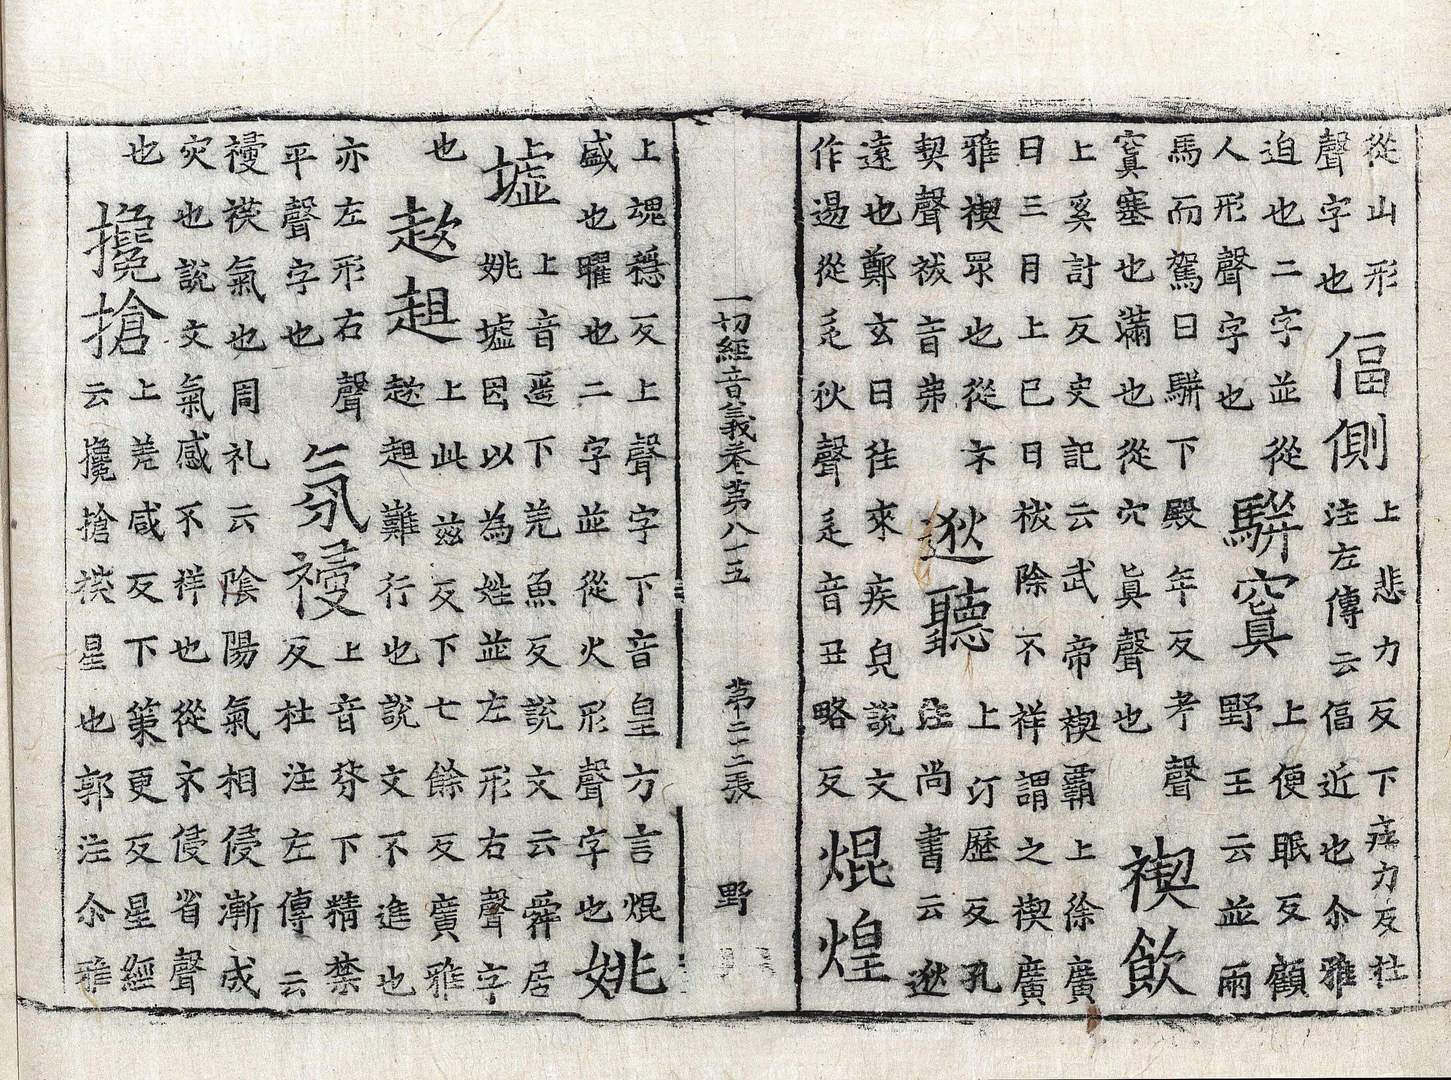 從山形
聲字也
偪側
上悲力反下疾力反杜
注左傳云偪近也尒雅
迫也二字並從
人形聲字也
騈窴
上便眠反顧
野王云並兩
馬而駕曰駢下殿年反考聲
窴塞也滿也從穴眞聲也
禊飲
上奚計反史記云武帝禊覇上徐廣
曰三月上巳日祓除不祥謂之禊廣
雅禊眾也從示
契聲祓音弗
逖聽
上汀歷反孔
注尚書云逖
遠也鄭玄曰往來疾皃說文
作逷從辵狄聲辵音丑略反
焜煌
一切經音義卷第八十五 第二十二張 野
上魂穩反上聲字下音皇方言焜
盛也曜也二字並從火形聲字也
姚
墟
上音遥下羌魚反說文云舜居
姚墟因以為姓並左形右聲字
也
趑趄
上此兹反下七餘反廣雅
趑趄難行也說文不進也
亦左形右聲
平聲字也
氛祲
上音芬下精禁
反杜注左傳云
祲祲氣也周礼云陰陽氣相侵漸成
灾也說文氣感不祥也從示侵省聲
也
攙搶
上差咸反下策更反星經
云攙搶祅星也郭注尒雅